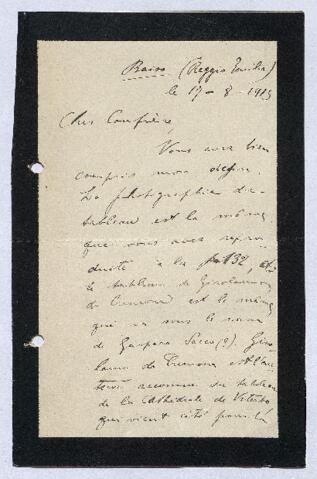 Baiso (Reggio Emilia)
le 17-8-1913
Cher Confrère,
Vous avez bien
compris mon
La photographie du
tableau est la même
que vous avez repro-
duite à la p. 132, et
le tableau de Girolamo
da Cremona est le même
qui va sous le nom
de Gaspare Sacco (?). Giro-
lamo da Cremona est l'au-
teur reconnu du tableau
de la Cathédrale de Viterbo
qui vient cité pour la